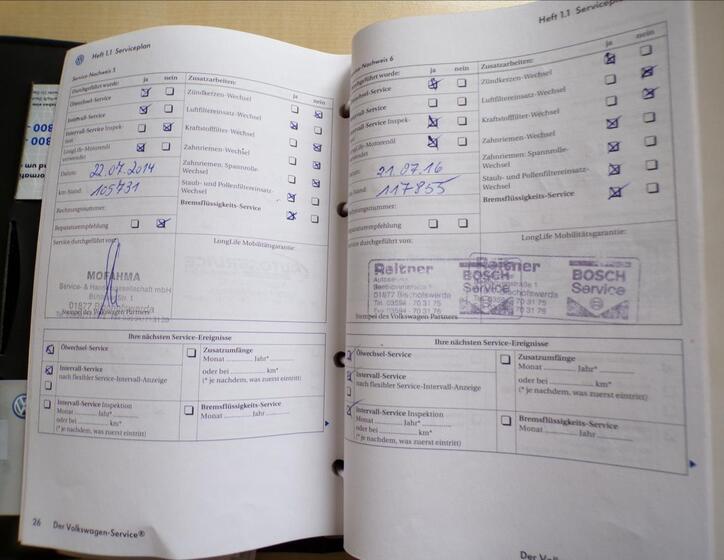 Heft 1.1 Serviceplan
Service-Nachweis 5
Durchgeführt wurde: ja nein
Ölwechsel-Service
Intervall-Service
Intervall-Service Inspektion
LongLife-Motorenöl verwendet
Datum: 22.07.2014
km-Stand: 105731
Rechnungsnummer:
Reparaturempfehlung
Service durchgeführt von:
Zusatzarbeiten: ja nein
Zündkerzen-Wechsel
Luftfiltereinsatz-Wechsel
Kraftstofffilter-Wechsel
Zahnriemen-Wechsel
Zahnriemen, Spannrolle-
Wechsel
Staub- und Pollenfiltereinsatz-
Wechsel
Bremsflüssigkeits-Service
LongLife Mobilitätsgarantie:
MOFAHMA
Service- & Handelsgesellschaft mbH
01877
Stempel des Volkswagen Partners
Ihre nächsten Service-Ereignisse
Ölwechsel-Service
Intervall-Service
nach flexibler Service-Intervall-Anzeige
Intervall-Service Inspektion
Monat Jahr*
oder bei km*
(* je nachdem, was zuerst eintritt)
Zusatzumfänge
Monat Jahr*
oder bei km*
(* je nachdem, was zuerst eintritt)
Bremsflüssigkeits-Service
Monat Jahr
26 Der Volkswagen-Service®
Heft 1.1 Serviceplan
Service-Nachweis 6
Durchgeführt wurde: ja nein
Ölwechsel-Service
Intervall-Service
Intervall-Service Inspek-
LongLife-Motorenöl
verwendet
21.07.16
km-Stand: 117855
Rechnungsnummer:
Reparaturempfehlung
Service durchgeführt von:
Zusatzarbeiten: ja nein
Zündkerzen-Wechsel
Luftfiltereinsatz-Wechsel
Kraftstofffilter-Wechsel
Zahnriemen-Wechsel
Zahnriemen, Spannrolle-
Wechsel
Staub- und Pollenfiltereinsatz-
Wechsel
Bremsflüssigkeits-Service
LongLife Mobilitätsgarantie:
Raitner
Autoservice
01877 Bischofswerda
Tel. 03594 - 70 31 75
Fax 03594 - 70 31 76
BOSCH
Service
Raitner
BOSCH
Service
Stempel des Volkswagen Partners
Ihre nächsten Service-Ereignisse
Ölwechsel-Service
Intervall-Service
nach flexibler Service-Intervall-Anzeige
Intervall-Service Inspektion
Monat Jahr*
oder bei km*
(* je nachdem, was zuerst eintritt)
Zusatzumfänge
Monat Jahr*
oder bei km*
(* je nachdem, was zuerst eintritt)
Bremsflüssigkeits-Service
Monat Jahr